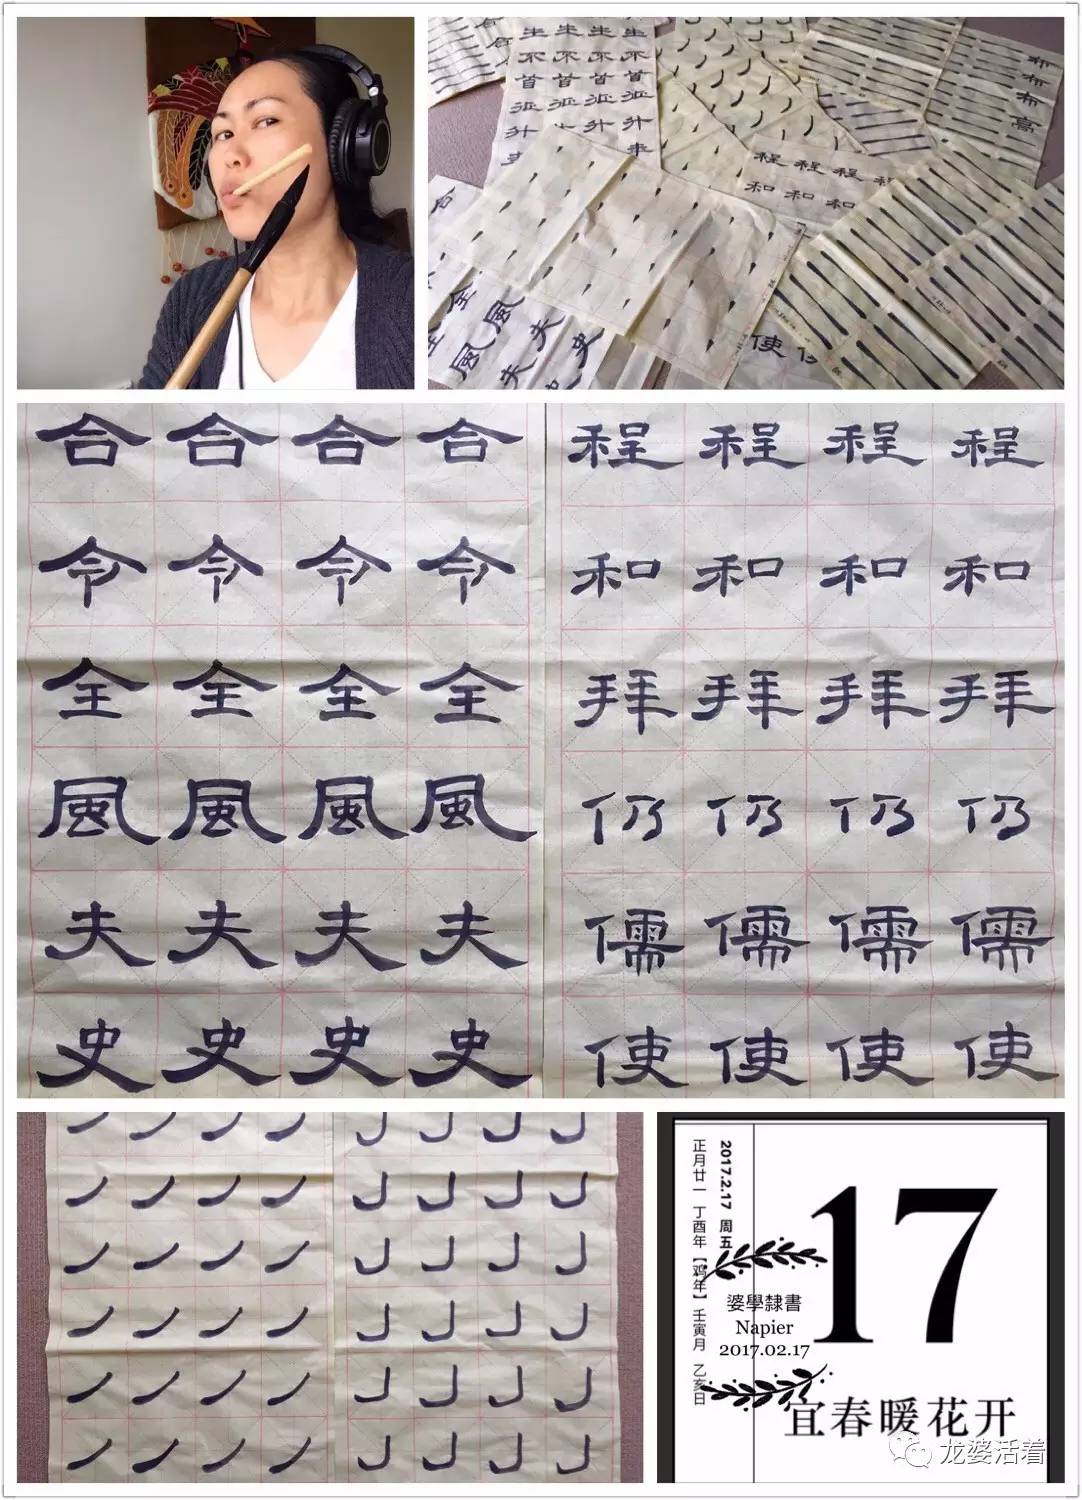 不 不 不 不
首 首 首 首
升 升 升 升
布
布
布
高
程 程 程 程
和 和 和 和
合
全 風 夫 史
全 風 夫 史
使 使
合 合 合 合
令 令 令 令
全 全 全 全
風 風 風 風
夫 夫 夫 夫
史 史 史 史
程 程 程 程
和 和 和 和
拜 拜 拜 拜
仍 仍 仍 仍
儒 儒 儒 儒
使 使 使 使
2017.2.17 周五
正月廿一 丁酉年【鸡年】 壬寅月 乙亥日
17
婆學隸書
Napier
2017.02.17
宜春暖花开
龙婆活着